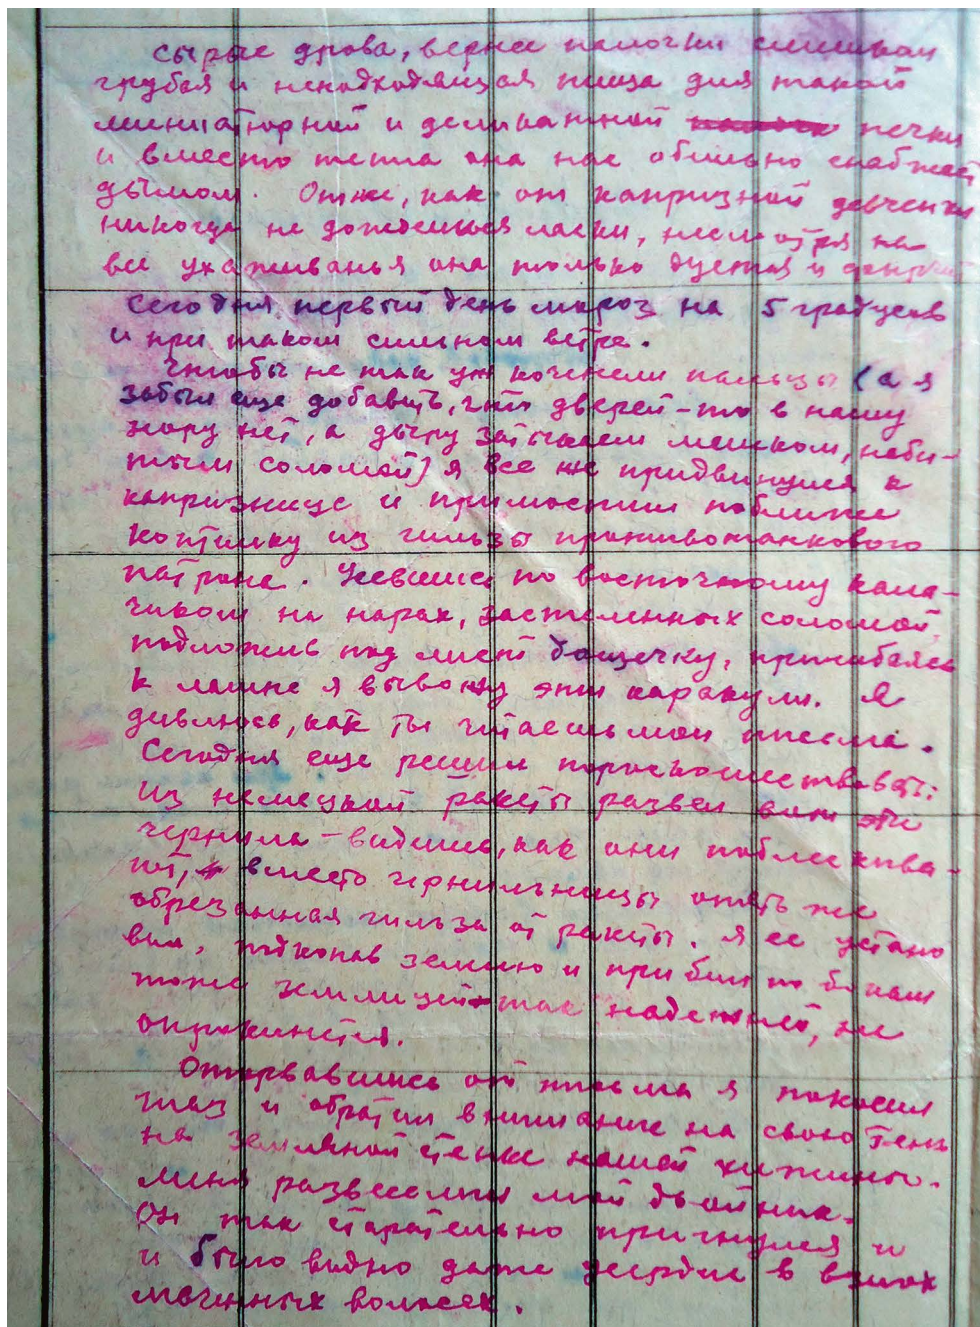 Сырые дрова, вернее палочки слишком
грубая и неподходящая пища для такой
миниатюрной и деликатной печки
и вместо тепла она нас обильно снабжает
дымом. От нее, как от капризной девченки
никогда не дождешься ласки, несмотря на
все ухаживанья она только дуется и
Сегодня первый день мороз на 5 градусов
и при таком сильном ветре.
Чтобы не так уж коченели пальцы (а я
забыл еще добавить, что дверей-то в нашу
нору нет, а дыру затыкаем мешком, наби-
тым соломой) я все же придвинулся к
капризнице и примостил поближе
коптилку из гильзы противотанкового
патрона. Усевшись по восточному кала-
чиком на нарах, застеленных соломой,
подложив под лист дощечку, пригибаясь
к лампе я вывожу эти каракули. Я
дивлюсь, как ты читаешь мои письма.
Сегодня еще решил пороскошествовать:
из немецкой ракеты развел вот эти
чернила – видишь, как они поблескива-
ют, вместо чернильницы опять же
обрезанная гильза от ракеты. Я ее устано
вил, подкопав землю и прибил по бокам
тоже землицей – так надежней, не
опрокинется.
Оторвавшись от письма я покосил
глаз и обратил внимание на свою тень
на земляной стенке нашей хижины.
Меня развеселил мой двойник.
Он так старательно пригнулся и
и было видно даже усердие в взлох
маченных волосах.